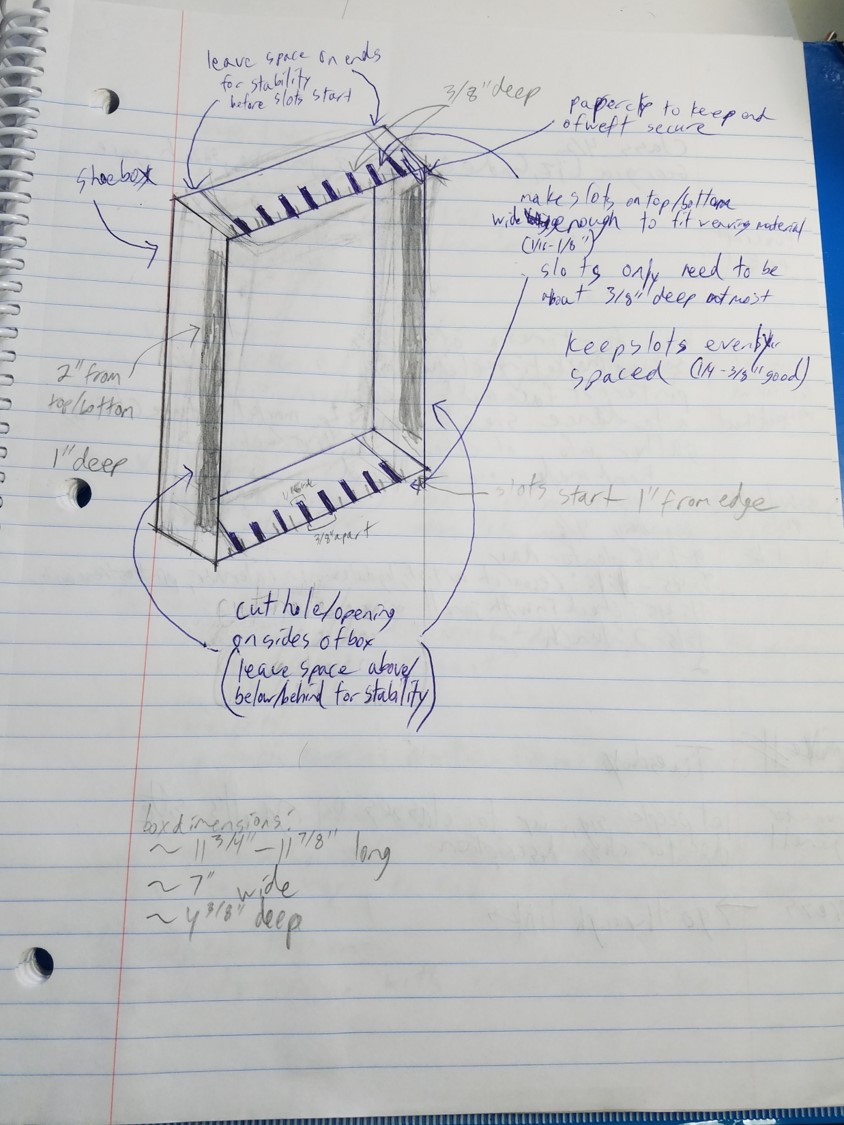 leave space on ends
for stability
before slots start
3/8" deep
paperclip to keep end
of weft secure
shoebox
make slots on top/bottom
wide enough to fit weaving material
(1/16-1/8")
slots only need to be
about 3/8" deep at most
keep slots evenly
spaced (1/4-3/8" good)
2" from
top/bottom
1" deep
3/8" apart
slots start 1" from edge
cut hole/opening
on sides of box
(leave space above/
below/behind for stability)
box dimensions:
~ 11 3/4" - 11 7/8" long
~ 7" wide
~ 4 3/8" deep